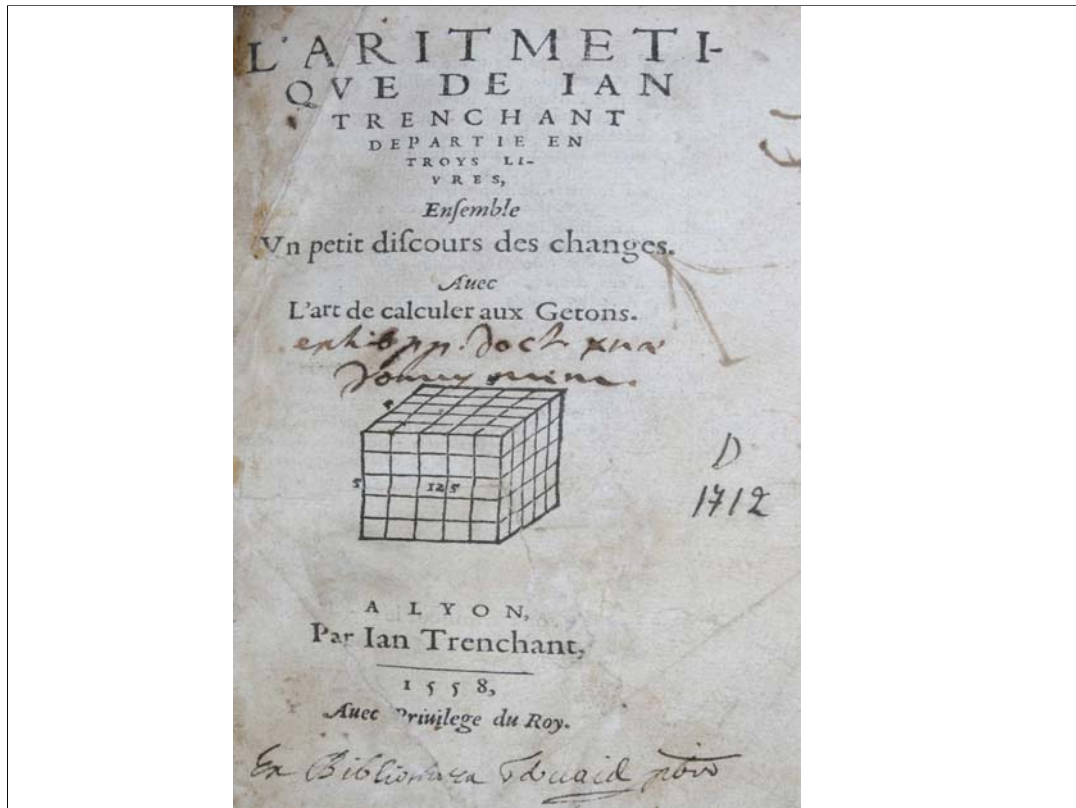 L'ARITMETI-
QVE DE IAN
TRENCHANT
DEPARTIE EN
TROYS LI-
VRES,
Enſemble
Vn petit diſcours des changes.
Auec
L'art de calculer aux Getons.
5
125
D
1712
A LYON,
Par Ian Trenchant,
1558,
Auec Priuilege du Roy.
Ex